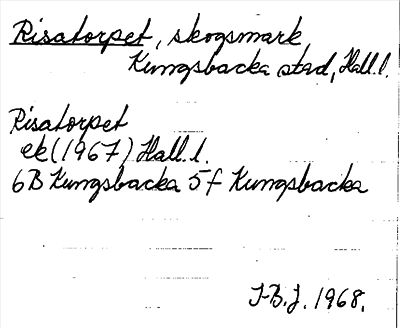 Risatorpet, skogsmark
Kungsbacka stad, Hall. l.
Risatorpet
ek (1967) Hall. l.
6B Kungsbacka 5f Kungsbacka
J-B. J. 1968.